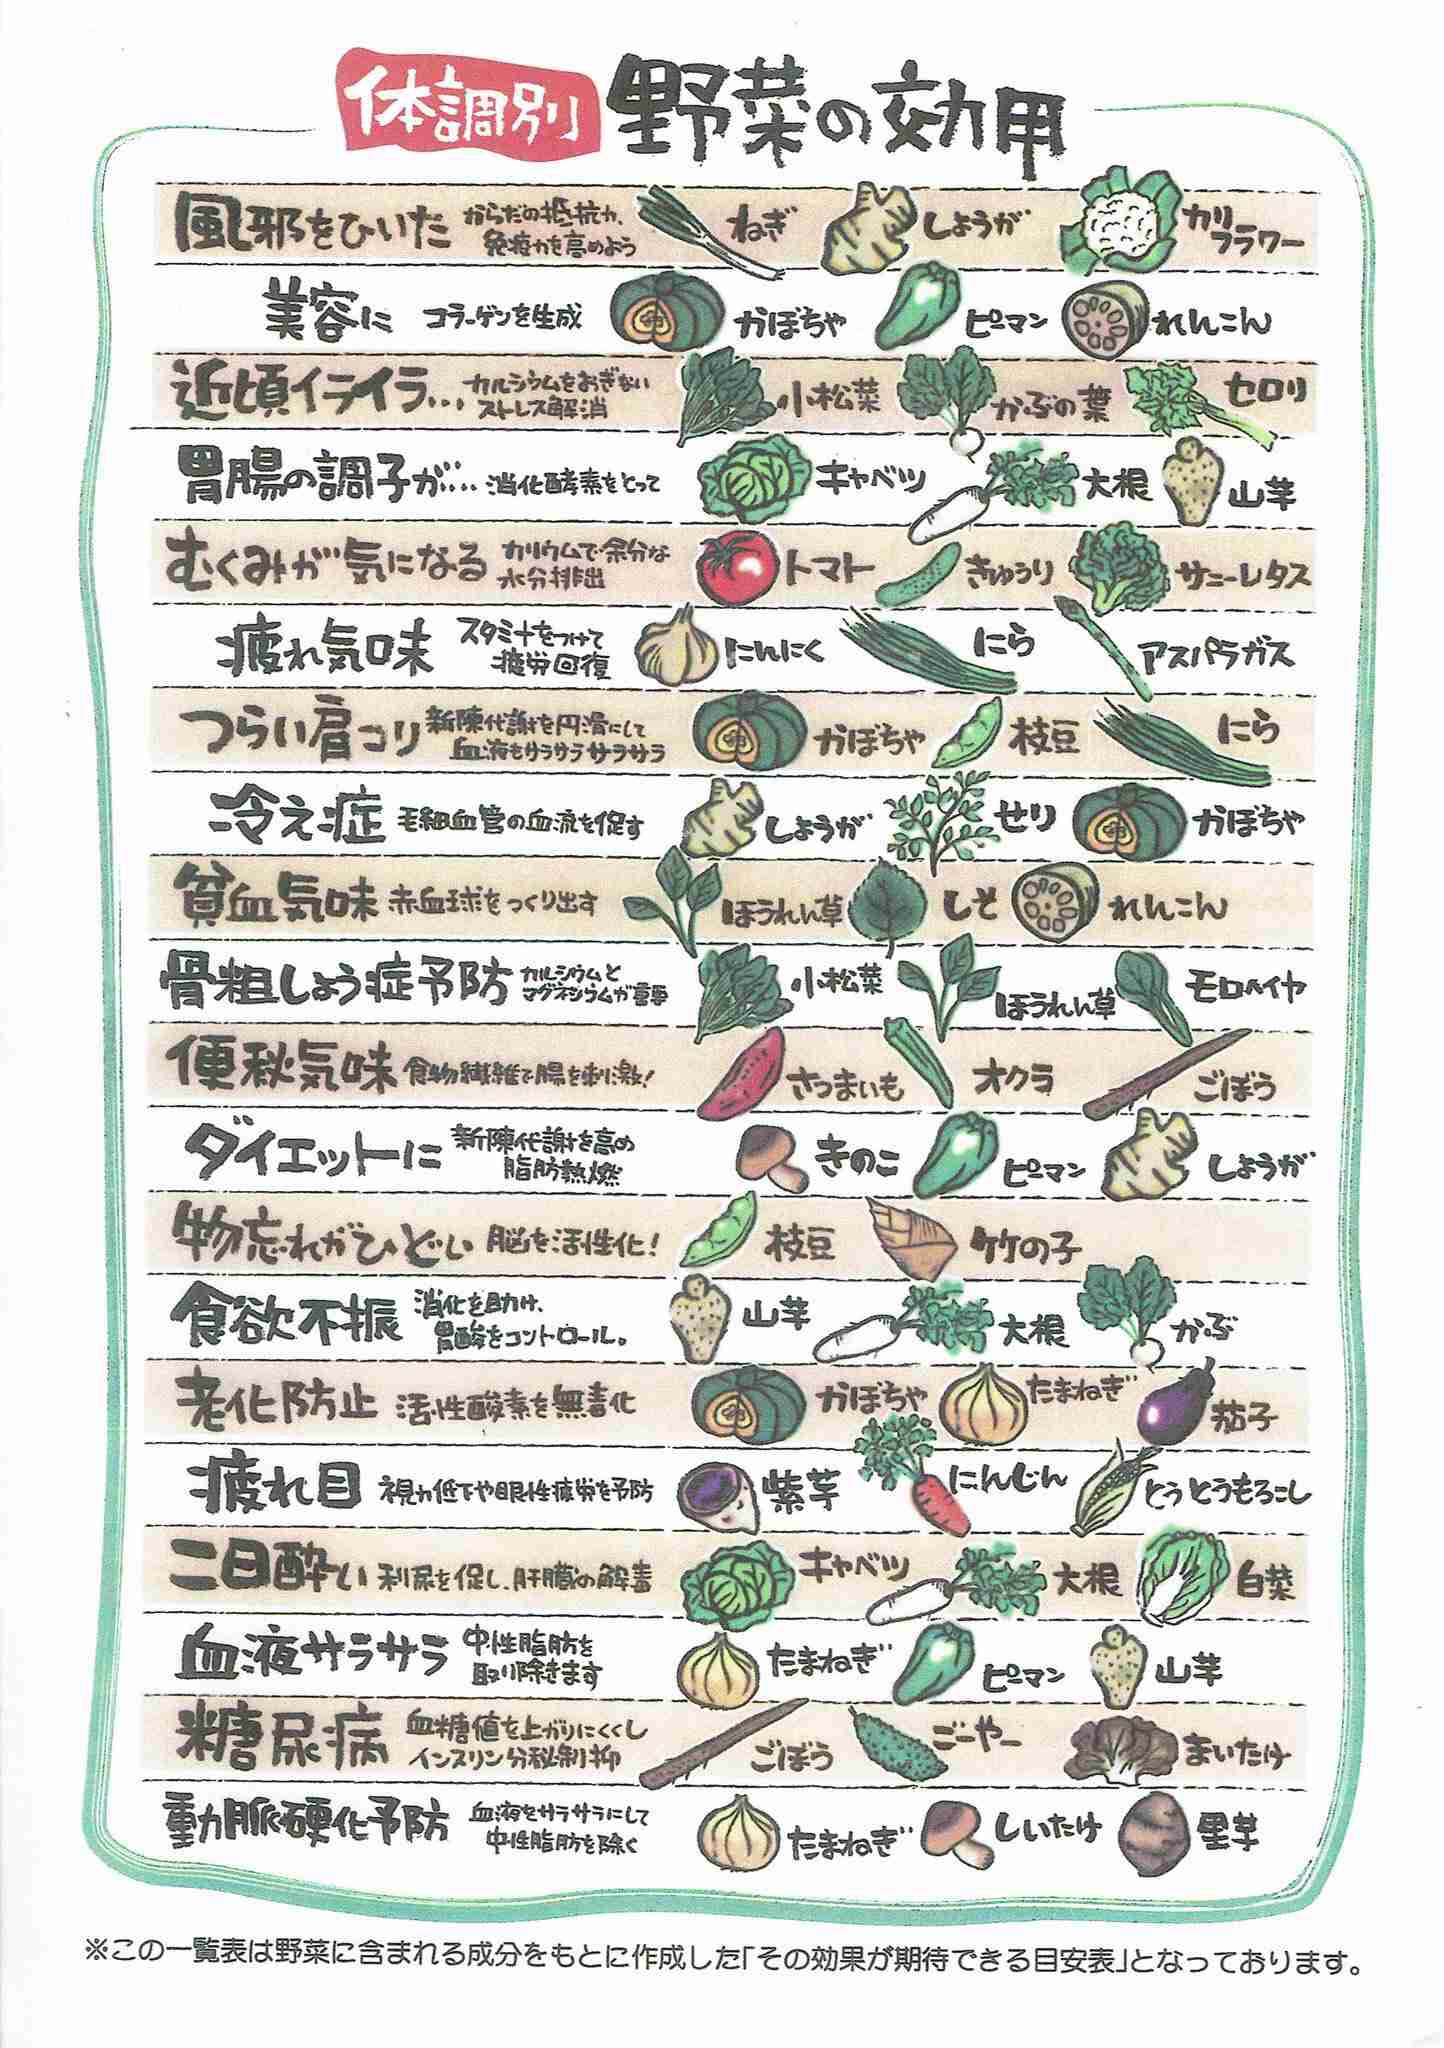 体調別 野菜の効用
風邪をひいた からだの抵抗力、 ねぎ しょうが カリ
免疫力を高めよう フラワー
美容に コラーゲンを生成 かぼちゃ ピーマン れんこん
近頃イライラ… カルシウムをおぎない 小松菜 かぶの葉 セロリ
ストレス解消
胃腸の調子が…. 消化酵素をとって キャベツ 大根 山芋
むくみが気になる カリウムで余分な トマト きゅうり サニーレタス
水分排出
疲れ気味 スタミナをつけて にんにく にら アスパラガス
疲労回復
つらい肩コリ 新陳代謝を円滑にして かぼちゃ 枝豆 にら
血液をサラサラサラサラ
冷え症 毛細血管の血流を促す しょうが せり かぼちゃ
貧血気味 赤血球をつくり出す ほうれん草 しそ れんこん
骨粗しょう症予防 カルシウムと 小松菜 ほうれん草 モロヘイヤ
マグネシウムが重要
便秘気味 食物繊維で腸を刺激! さつまいも オクラ ごぼう
ダイエットに 新陳代謝を高め きのこ ピーマン しょうが
脂肪熱燃
物忘れがひどい 脳を活性化! 枝豆 竹の子
食欲不振 消化を助け、 山芋 大根 かぶ
胃酸をコントロール。
老化防止 活性酸素を無毒化 かぼちゃ たまねぎ 茄子
疲れ目 視力低下や眼性疲労を予防 紫芋 にんじん とうとうもろこし
二日酔い 利尿を促し、肝臓の解毒 キャベツ 大根 白菜
血液サラサラ 中性脂肪を たまねぎ ピーマン 山芋
取り除きます
糖尿病 血糖値を上がりにくくし ごぼう ごーやー まいたけ
インスリン分秘制抑
動脈硬化予防 血液をサラサラにして たまねぎ しいたけ 里芋
中性脂肪を除く
※この一覧表は野菜に含まれる成分をもとに作成した「その効果が期待できる目安表」となっております。